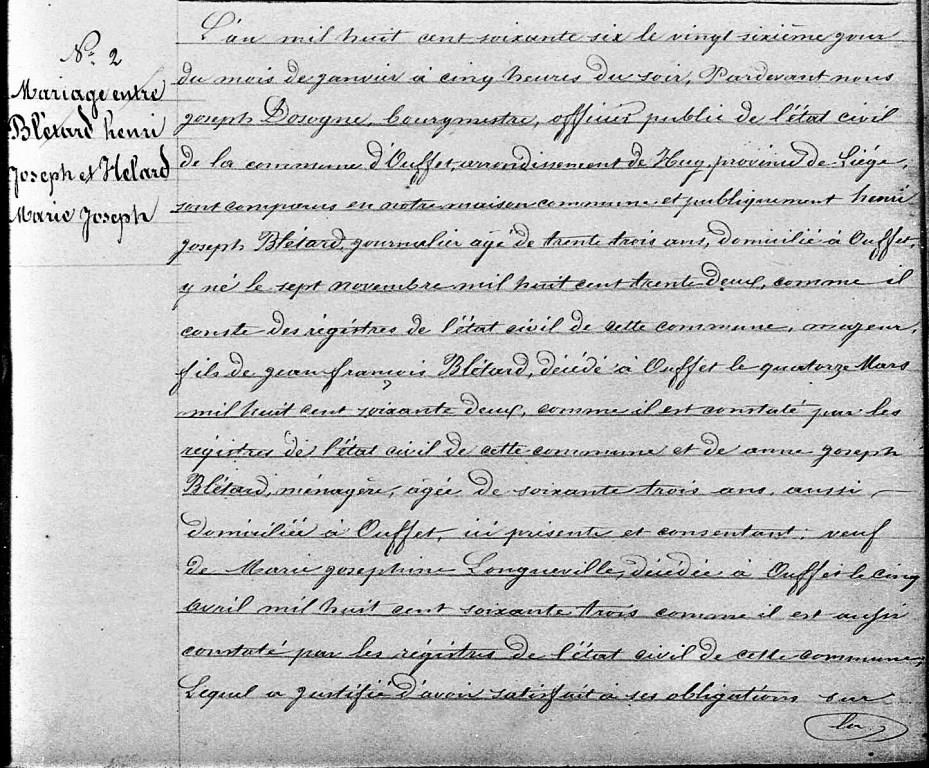 N° 2
Mariage entre
Blétard henri
Joseph et Helard
Marie Joseph
L'an mil huit cent soixante six le vingt sixième jour
du mois de janvier à cinq heures du soir, Pardevant nous
joseph Dosogne, bourgmestre, officier public de l'état civil
de la commune d'Ouffet, arrondissement de Huy, province de Liége,
sont comparus en notre maison commune et publiquement henri
joseph Blétard, journalier agé de trente trois ans, domicilié à Ouffet,
y né le sept novembre mil huit cent trente deux, comme il
conste des régistres de l'état civil de cette commune, majeur,
fils de jean françois Blétard, décédé à Ouffet le quatorze Mars
mil huit cent soixante deux, comme il est constaté par les
régistres de l'état civil de cette commune et de anne joseph
Blétard, ménagère, agée de soixante trois ans, aussi
domiciliée à Ouffet, ici présente et consentant; veuf
de Marie josephine Longueville, décédée à Ouffet le cinq
avril mil huit cent soixante trois comme il est aussi
constaté par les régistres de l'état civil de cette commune;
Lequel a justifié d'avoir satisfait à ses obligations sur
la